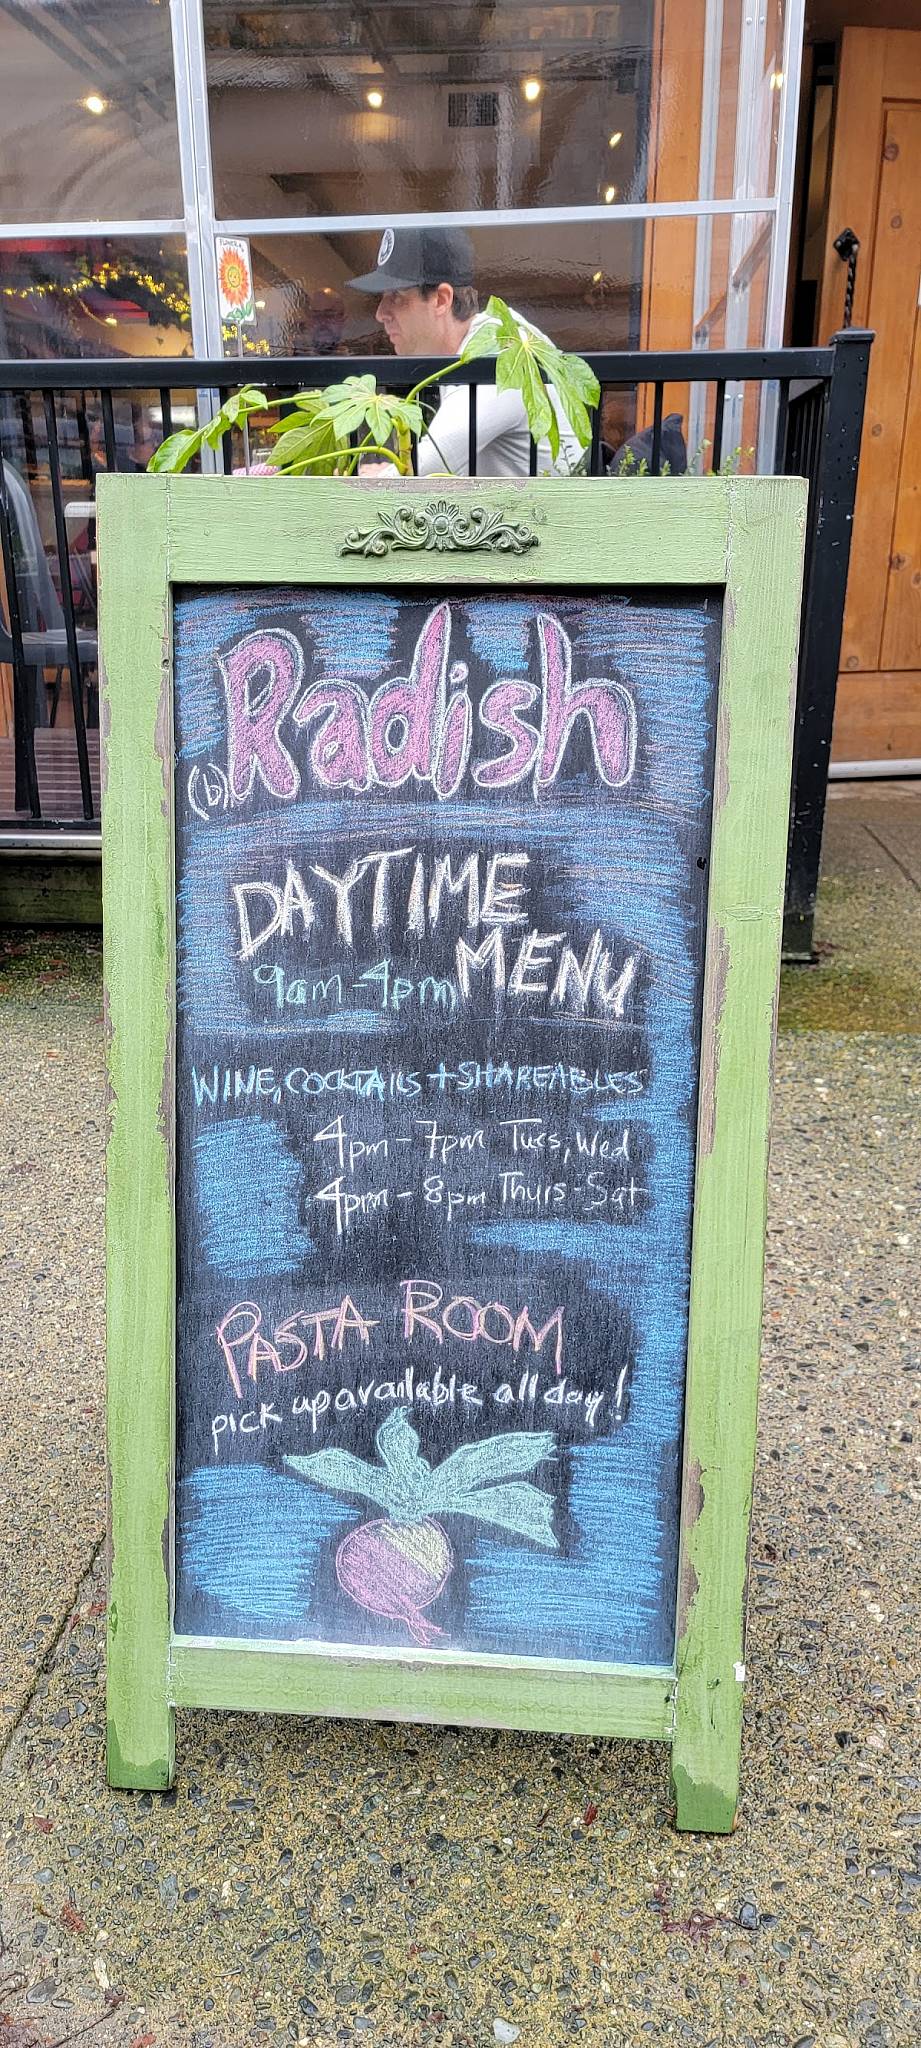 (b)Radish
DAYTIME
MENU
9am-4pm
WINE, COCKTAILS + SHAREABLES
4pm-7pm Tues, Wed
4pm-8pm Thurs-Sat
PASTA ROOM
pick up available all day!